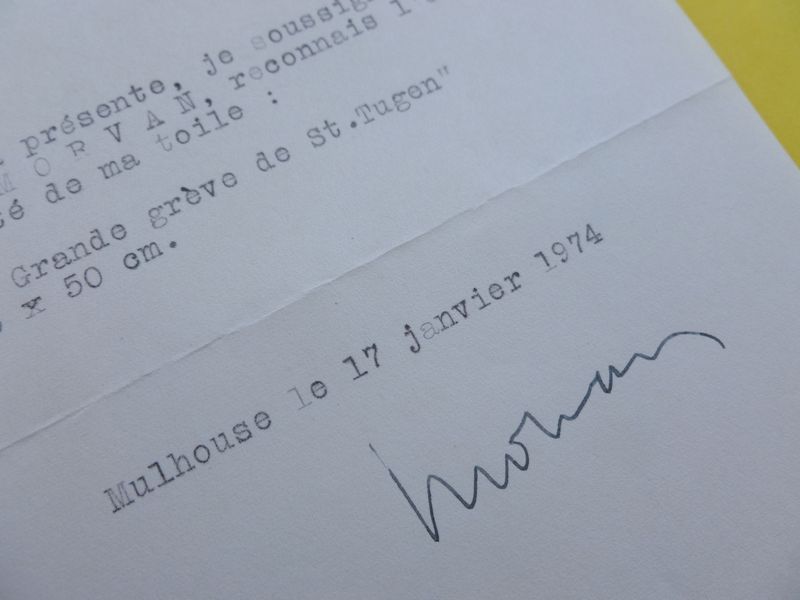 présente, je soussig
MORVAN, reconnais l'
té de ma toile :
Grande grève de St.Tugen"
x 50 cm.
Mulhouse le 17 janvier 1974
Morvan